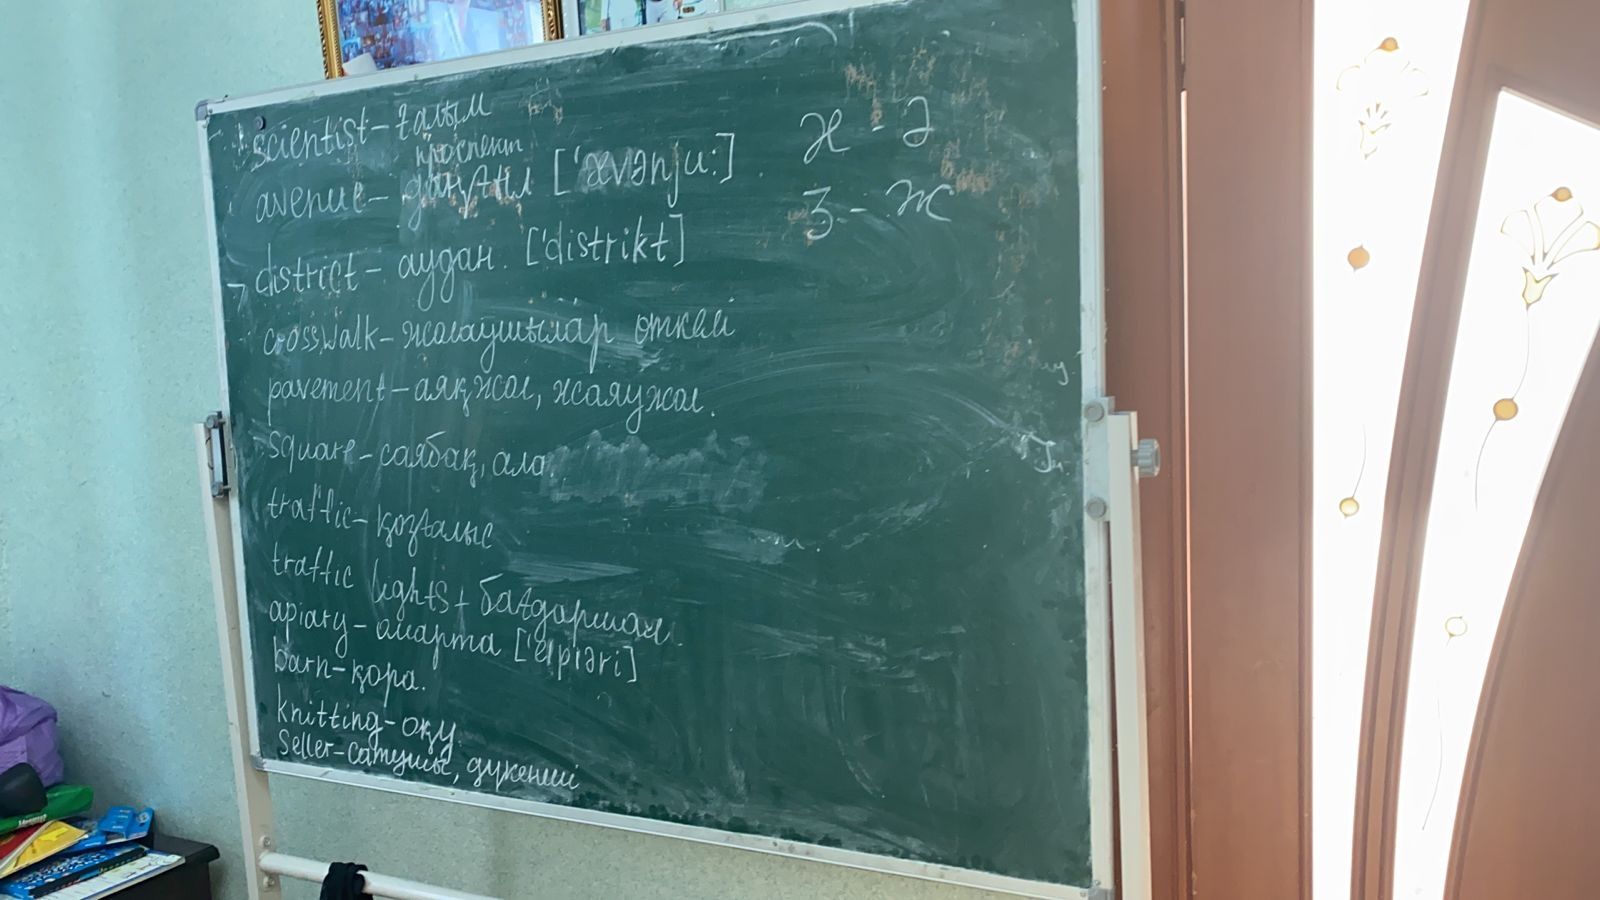 scientist - ғалым
проспект
avenue - даңғыл ['ævənju:]. æ - ә
ʒ - ж
district - аудан. ['distrikt]
crosswalk - жолаушылар өткелі
pavement - аяқжол, жаяужол.
square - саябақ, ала
traffic - қозғалыс
traffic lights + бағдаршам
apiary - омарта ['eɪpɪəri]
barn - қора.
knitting - оқу
seller - сатушы, дүкенші